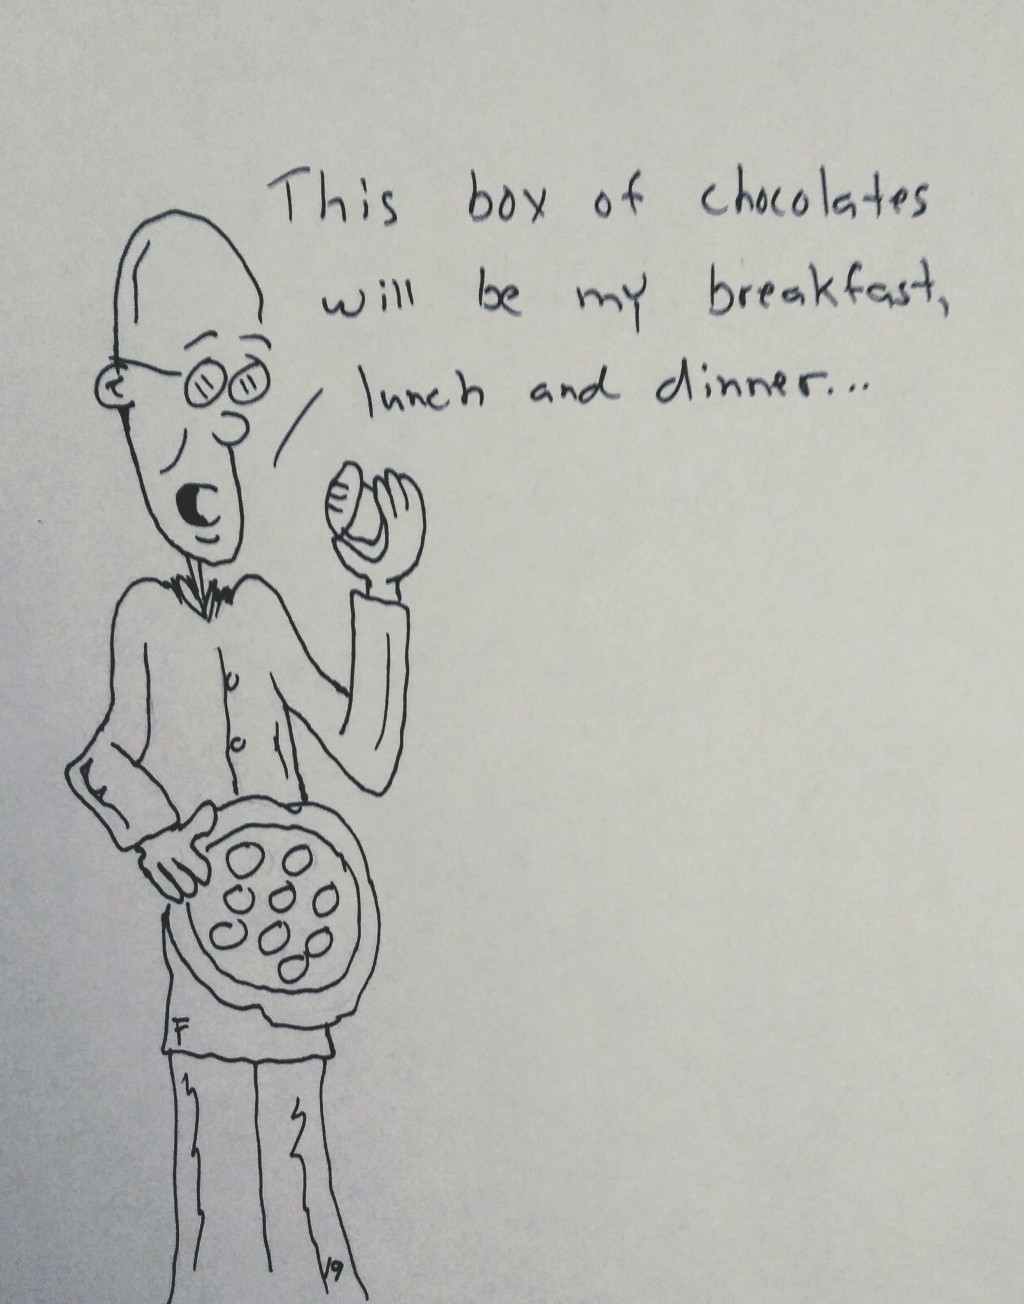 This box of chocolates
will be my breakfast,
lunch and dinner...
F
19